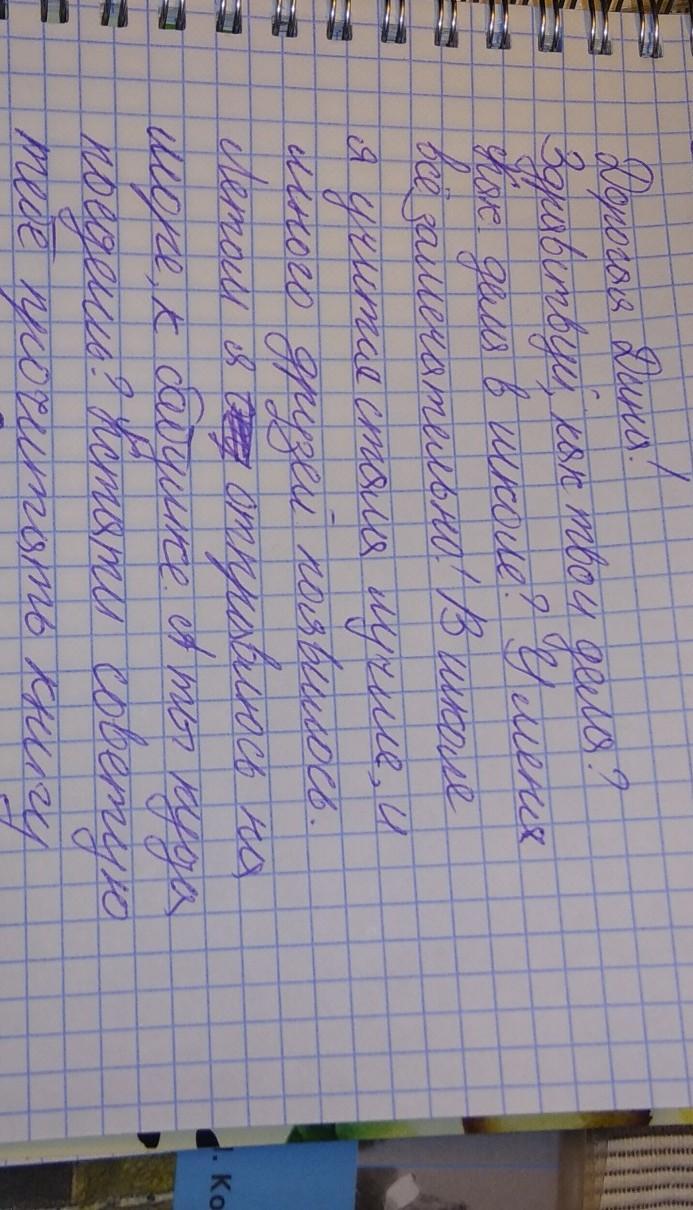 Дорогая Дина!
Здравствуй, как твои дела?
Как дела в школе? У меня
всё замечательно! В школе
я учится стала лучше, и
много друзей появилось.
Летом я отправлюсь на
море, к бабушке. А ты куда
поедешь? Кстати советую
тебе прочитать книгу
. Ко